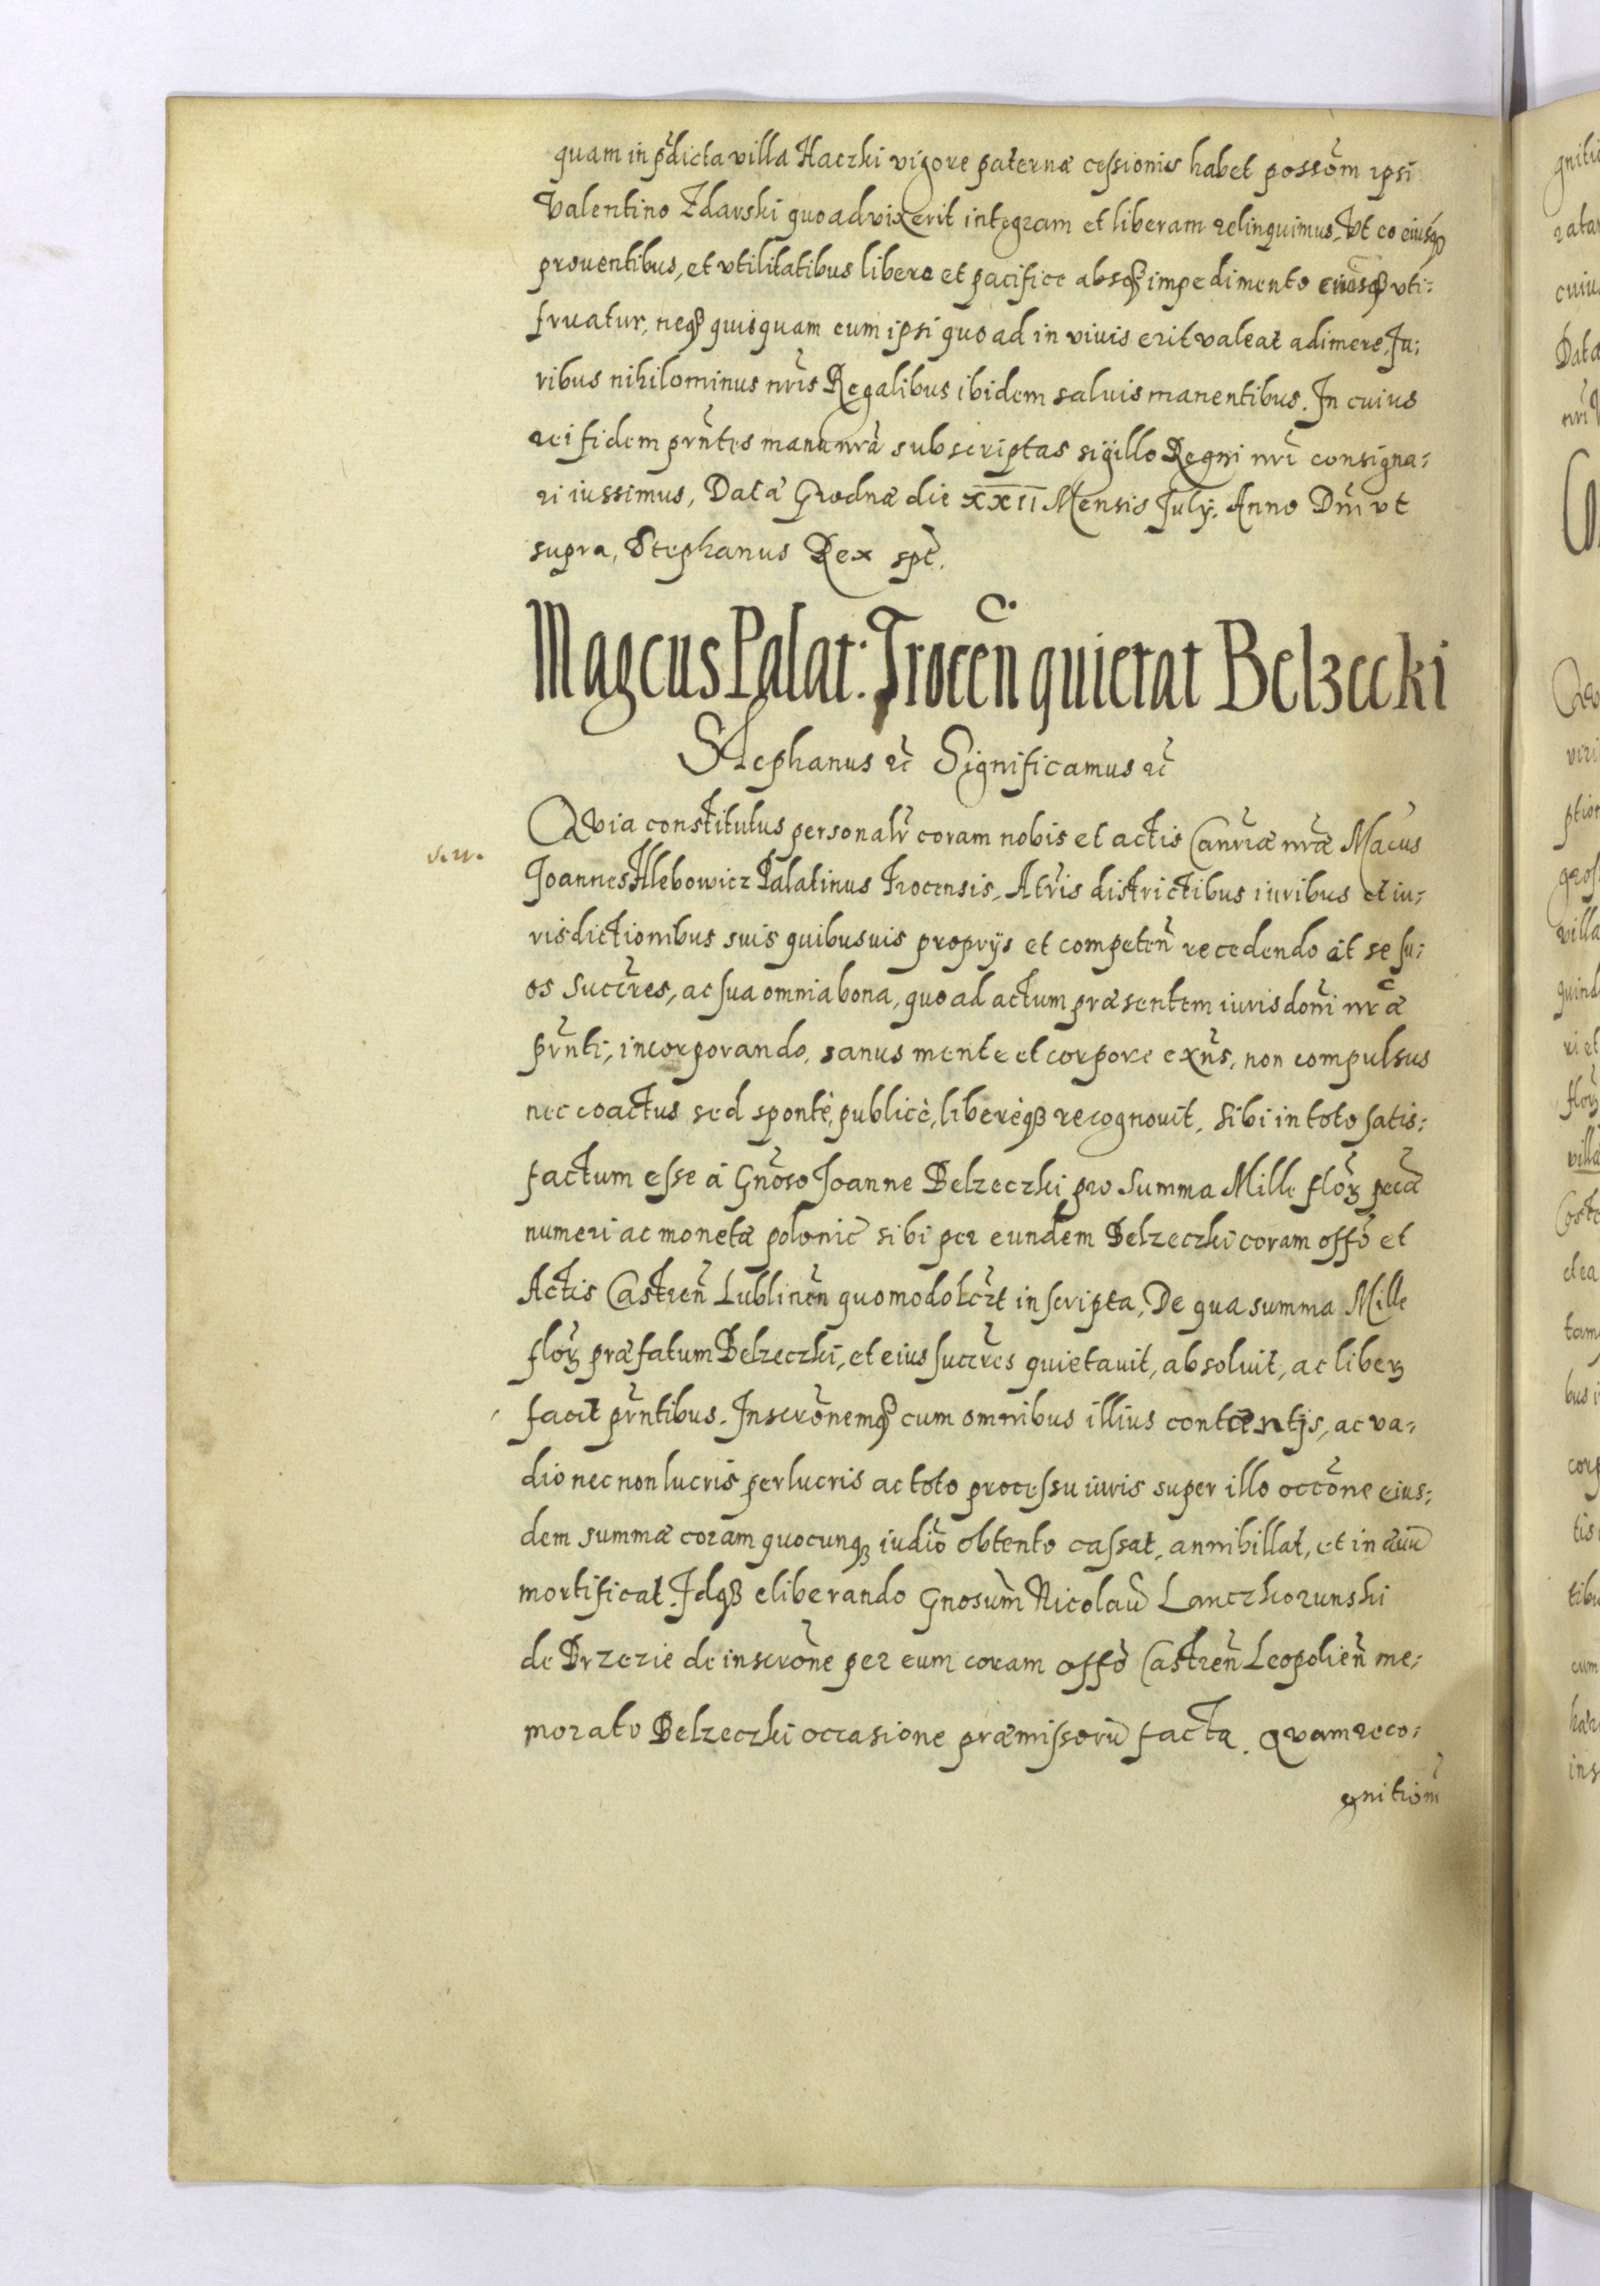 quam in pr̃dicta villa Haczki vigore paternæ cessionis habet possõm ipsi
Valentino Zdarski quoad vixerit integram et liberam relinquimus, Vt eo eiusq3
prouentibus, et vtilitatibus libere et pacifice absq3 impedimento cuiusq3 vti=
fruatur, neq3 quisquam eum ipsi quoad in viuis erit valeat adimere, Iu=
ribus nihilominus nr̃is Regalibus ibidem saluis manentibus. In cuius
rei fidem pr̃ntes manu nr̃a subscriptas sigillo Regni nr̃i consigna=
ri iussimus, Datæ Grodnæ die XXII Mensis July. Anno Dni̅ vt
supra, Stephanus Rex spt̃.
Magcus Palat: Trocen̄ quietat Belzecki
Stephanus etc̃ Significamus etc̃
Quia constitutus personalr̃ coram nobis et actis Canr̃iæ nr̃æ Macus
Joannes Hlebowicz Palatinus Trocensis, A tr̃is districtibus iuribus et iu=
risdictionibus suis quibusuis proprijs et competen̄ recedendo at se su=
os succr̃es, ac sua omnia bona, quoad actum præsentem iurisdoni̅ nr̃æ
pr̃nti, incorporando, sanus mente et corpore exn̄s, non compulsus
nec coactus sed spontè, publicè, liberèq3 recognouit, sibi in toto satis=
factum esse à Gnōso Joanne Belzeczki pro Summa Mille flor3 pecæ
numeri ac monetæ polonic̃ sibi per eundem Belzeczki coram offō et
Actis Castren̄ Lublinen̄ quomodolt̃ inscripta, De qua summa Mille
flor3 præfatum Belzeczki, et eius succr̃es quietauit, absoluit, ac liber3
facit pr̃ntibus. Inscrōnemq3 cum omnibus illius contentis, ac va=
dio nec non lucris perlucris ac toto processu iuris super illo occōne eius=
dem summæ coram quocunq3 iudiō obtento cassat, annihillat, et in æuū
mortificat. Idq3 eliberando Gnosum̄ Nicolaū Lanczkorunski
de Brzezie de inscrōne per eum coram offō Castren̄ Leopolien̄ me=
morato Belzeczki occasione præmissorū facta. Quam reco=
gnitiom̄